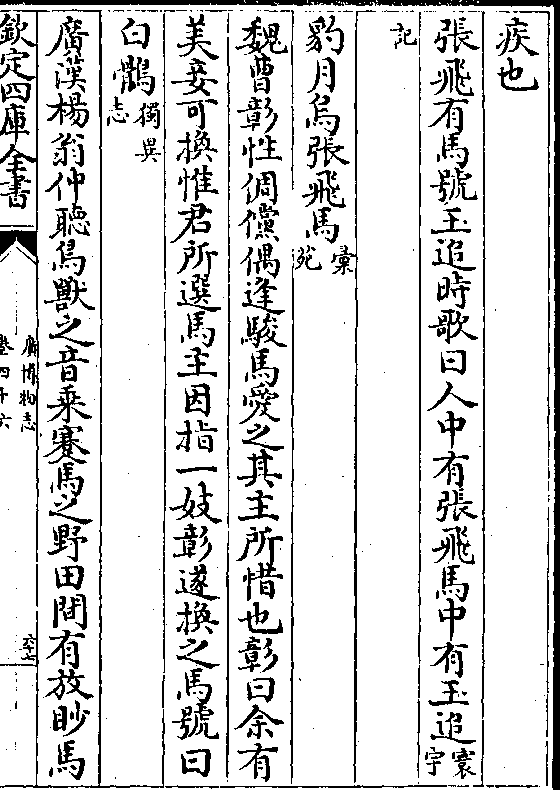 疾也
張飛有馬號玉追時歌曰人中有張飛馬中有玉追寰宇
記
豹月烏張飛馬彚苑
魏曹彰性倜儻偶逢駿馬愛之其主所惜也彰曰余有
美妾可換惟君所選馬主因指一妓彰遂換之馬號曰
白鶻獨異志
廣漢楊翁仲聽鳥獸之音乗蹇馬之野田間有放眇馬
欽定四庫全書
廣博物志
卷四十六
六十七